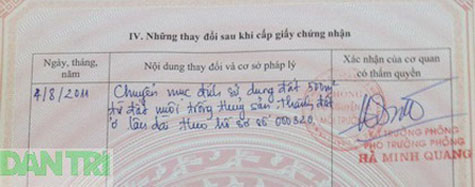 IV. Những thay đổi sau khi cấp giấy chứng nhận
Ngày, tháng, năm
Nội dung thay đổi và cơ sở pháp lý
Xác nhận của cơ quan có thẩm quyền
4/8/2011
Chuyển mục đích sử dụng đất 500m²
từ đất nuôi trồng thủy sản thành đất
ở lâu dài theo hồ sơ số 000320.
PHÓ TRƯỞNG PHÒNG
HÀ MINH QUANG
DÂN TRÍ